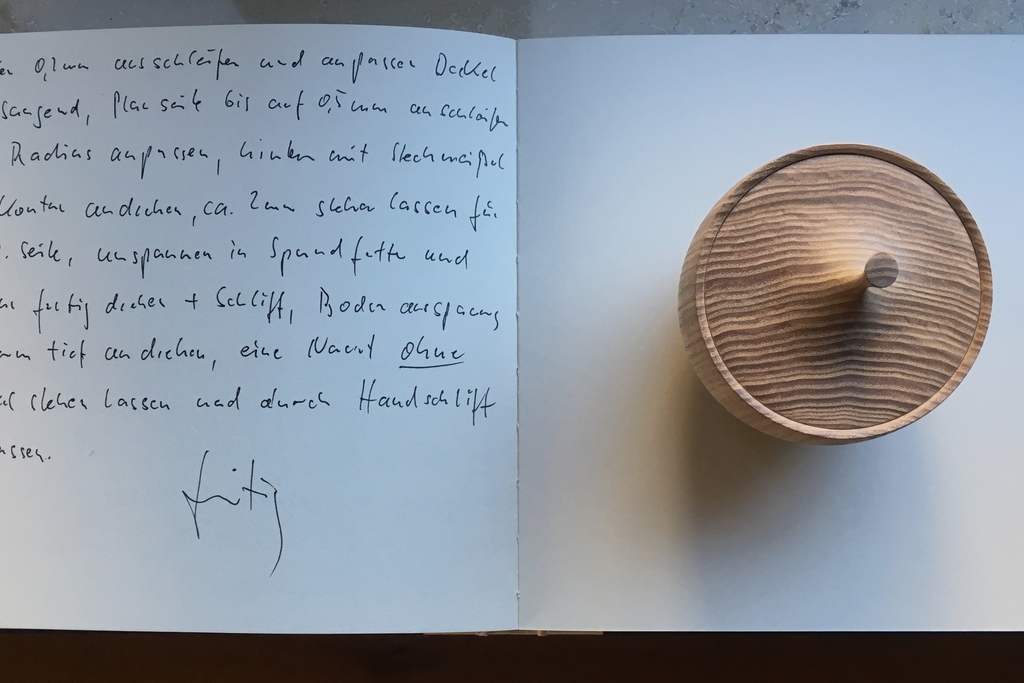 0,2mm ausschleifen und anpassen Deckel
saugend, Planseite bis auf 0,5mm anschleifen
Radius anpassen, hinten mit Stechmeißel
Kontur andrehen, ca. 2mm stehen lassen für
Seite, umspannen in Spundfutter und
fertig drehen + Schliff, Boden ausspannung
tief andrehen, eine Nacht ohne
stehen lassen und durch Handschliff
fertig